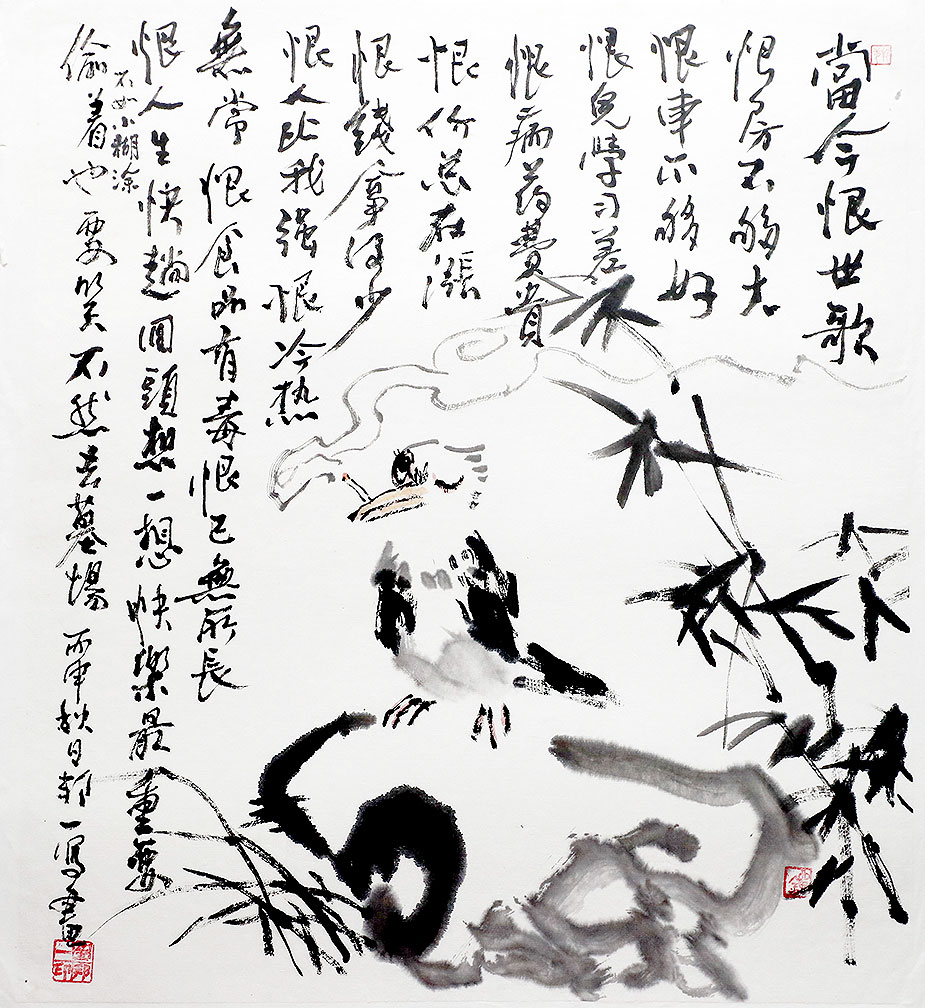 當今恨世歌
恨房不够大
恨車不够好
恨兒學习差
恨病药費貴
恨价总在漲
恨錢拿得少
恨人比我强恨冷热
無常恨食品有毒恨己無所長
恨人生快趟回頭想一想快樂最重要
不如小糊涂
偷着也要笑不然去墓場丙申秋日邦一寫畫